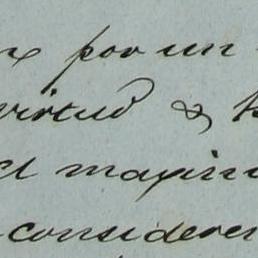 por un
virtud &
el maxim
consideren